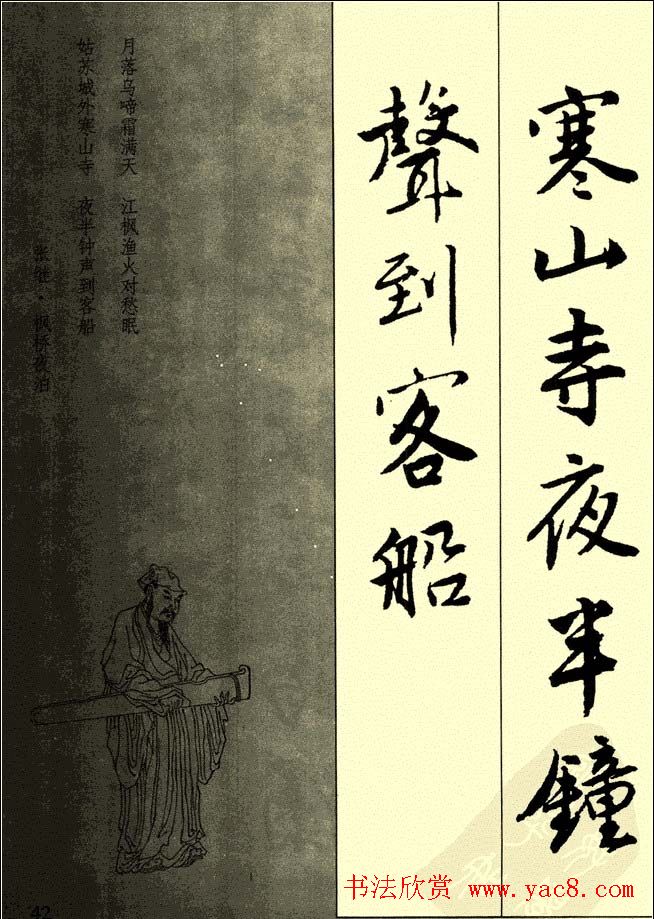 寒山寺夜半鐘
聲到客船
月落乌啼霜满天 江枫渔火对愁眠
姑苏城外寒山寺 夜半钟声到客船
张继·枫桥夜泊
42
书法欣赏 www.yac8.com